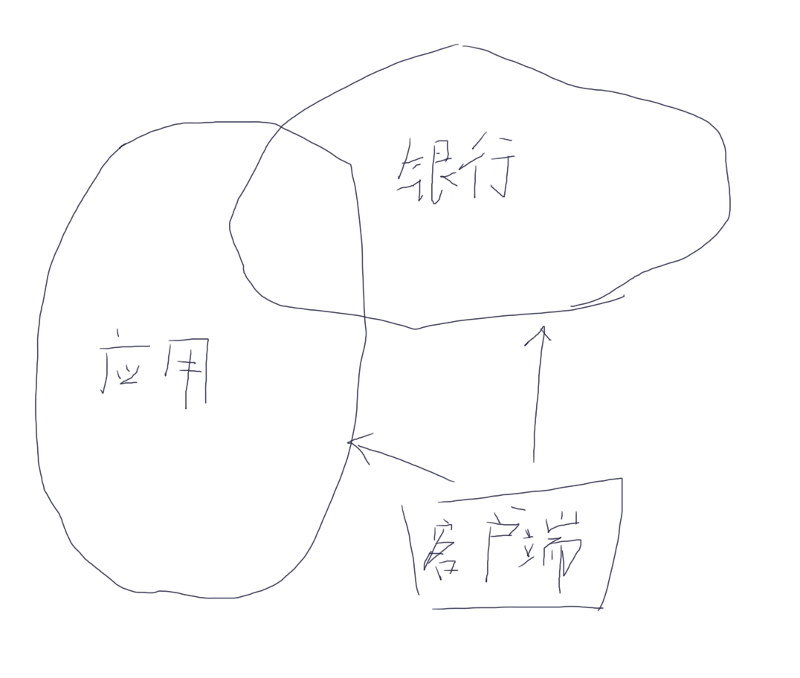 银行
应用
客户端